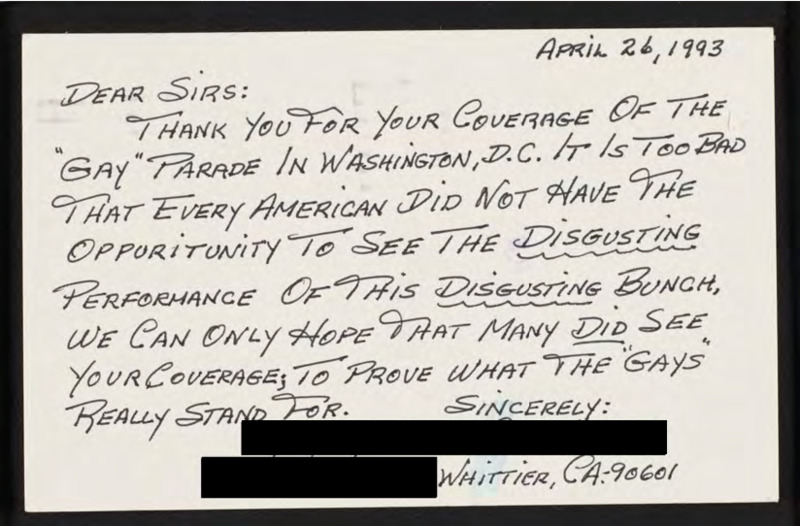 APRIL 26, 1993
DEAR SIRS:
THANK YOU FOR YOUR COVERAGE OF THE
"GAY" PARADE IN WASHINGTON, D.C. IT IS TOO BAD
THAT EVERY AMERICAN DID NOT HAVE THE
OPPURITUNITY TO SEE THE DISGUSTING
PERFORMANCE OF THIS DISGUSTING BUNCH,
WE CAN ONLY HOPE THAT MANY DID SEE
YOUR COVERAGE; TO PROVE WHAT THE "GAYS"
REALLY STAND FOR. SINCERELY:
WHITTIER, CA-90601